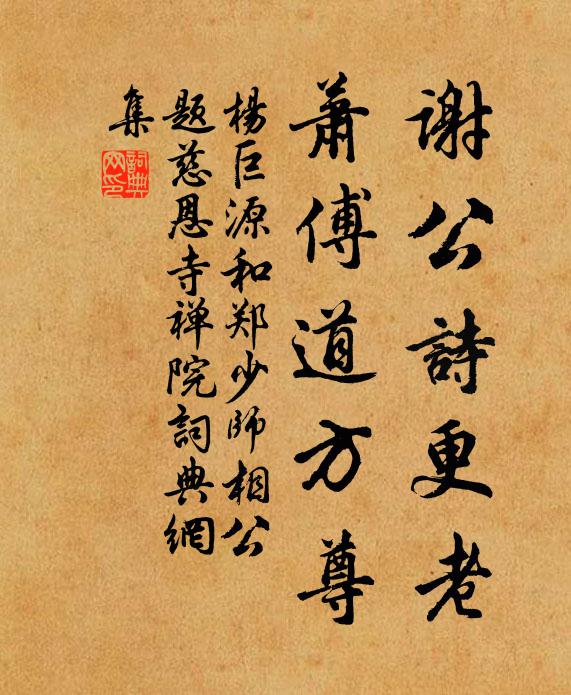 謝公詩更老
蕭傅道方尊
楊巨源和郑少师相公
题慈恩寺禅院詞典網
集
詞典网印